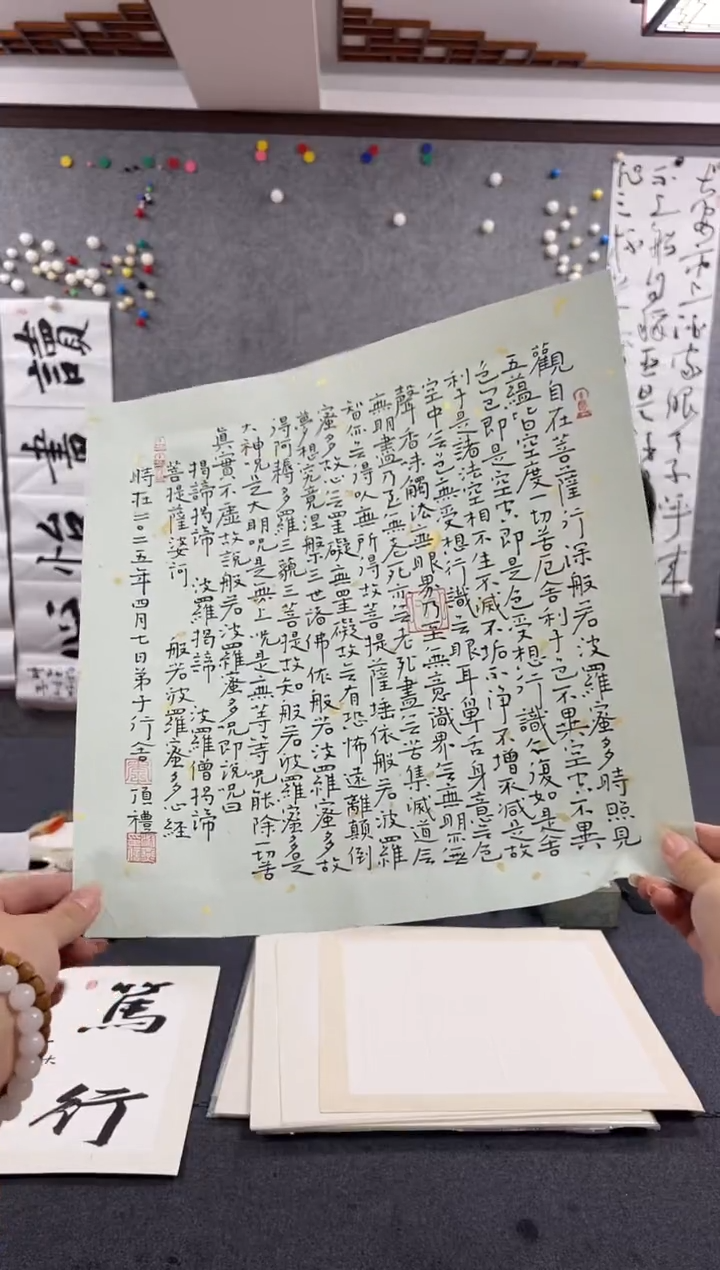 觀自在菩薩行深般若波羅蜜多時照見
五蘊皆空度一切苦厄舍利子色不異空空不異
色色即是空空即是色受想行識亦復如是舍
利子是諸法空相不生不滅不垢不淨不增不減是故
空中無色無受想行識無眼耳鼻舌身意無色
聲香味觸法無眼界乃至無意識界無無明亦無
無明盡乃至無老死亦無老死盡無苦集滅道無
智亦無得以無所得故菩提薩埵依般若波羅
蜜多故心無罣礙無罣礙故無有恐怖遠離顛倒
夢想究竟涅槃三世諸佛依般若波羅蜜多故
得阿耨多羅三藐三菩提故知般若波羅蜜多是
大神咒是大明咒是無上咒是無等等咒能除一切苦
真實不虛故說般若波羅蜜多咒即說咒曰
揭諦揭諦 波羅揭諦 波羅僧揭諦
菩提薩婆訶 般若波羅蜜多心經
時在二〇二五年四月七日弟子行舍頂禮
讀書怡心
篤行